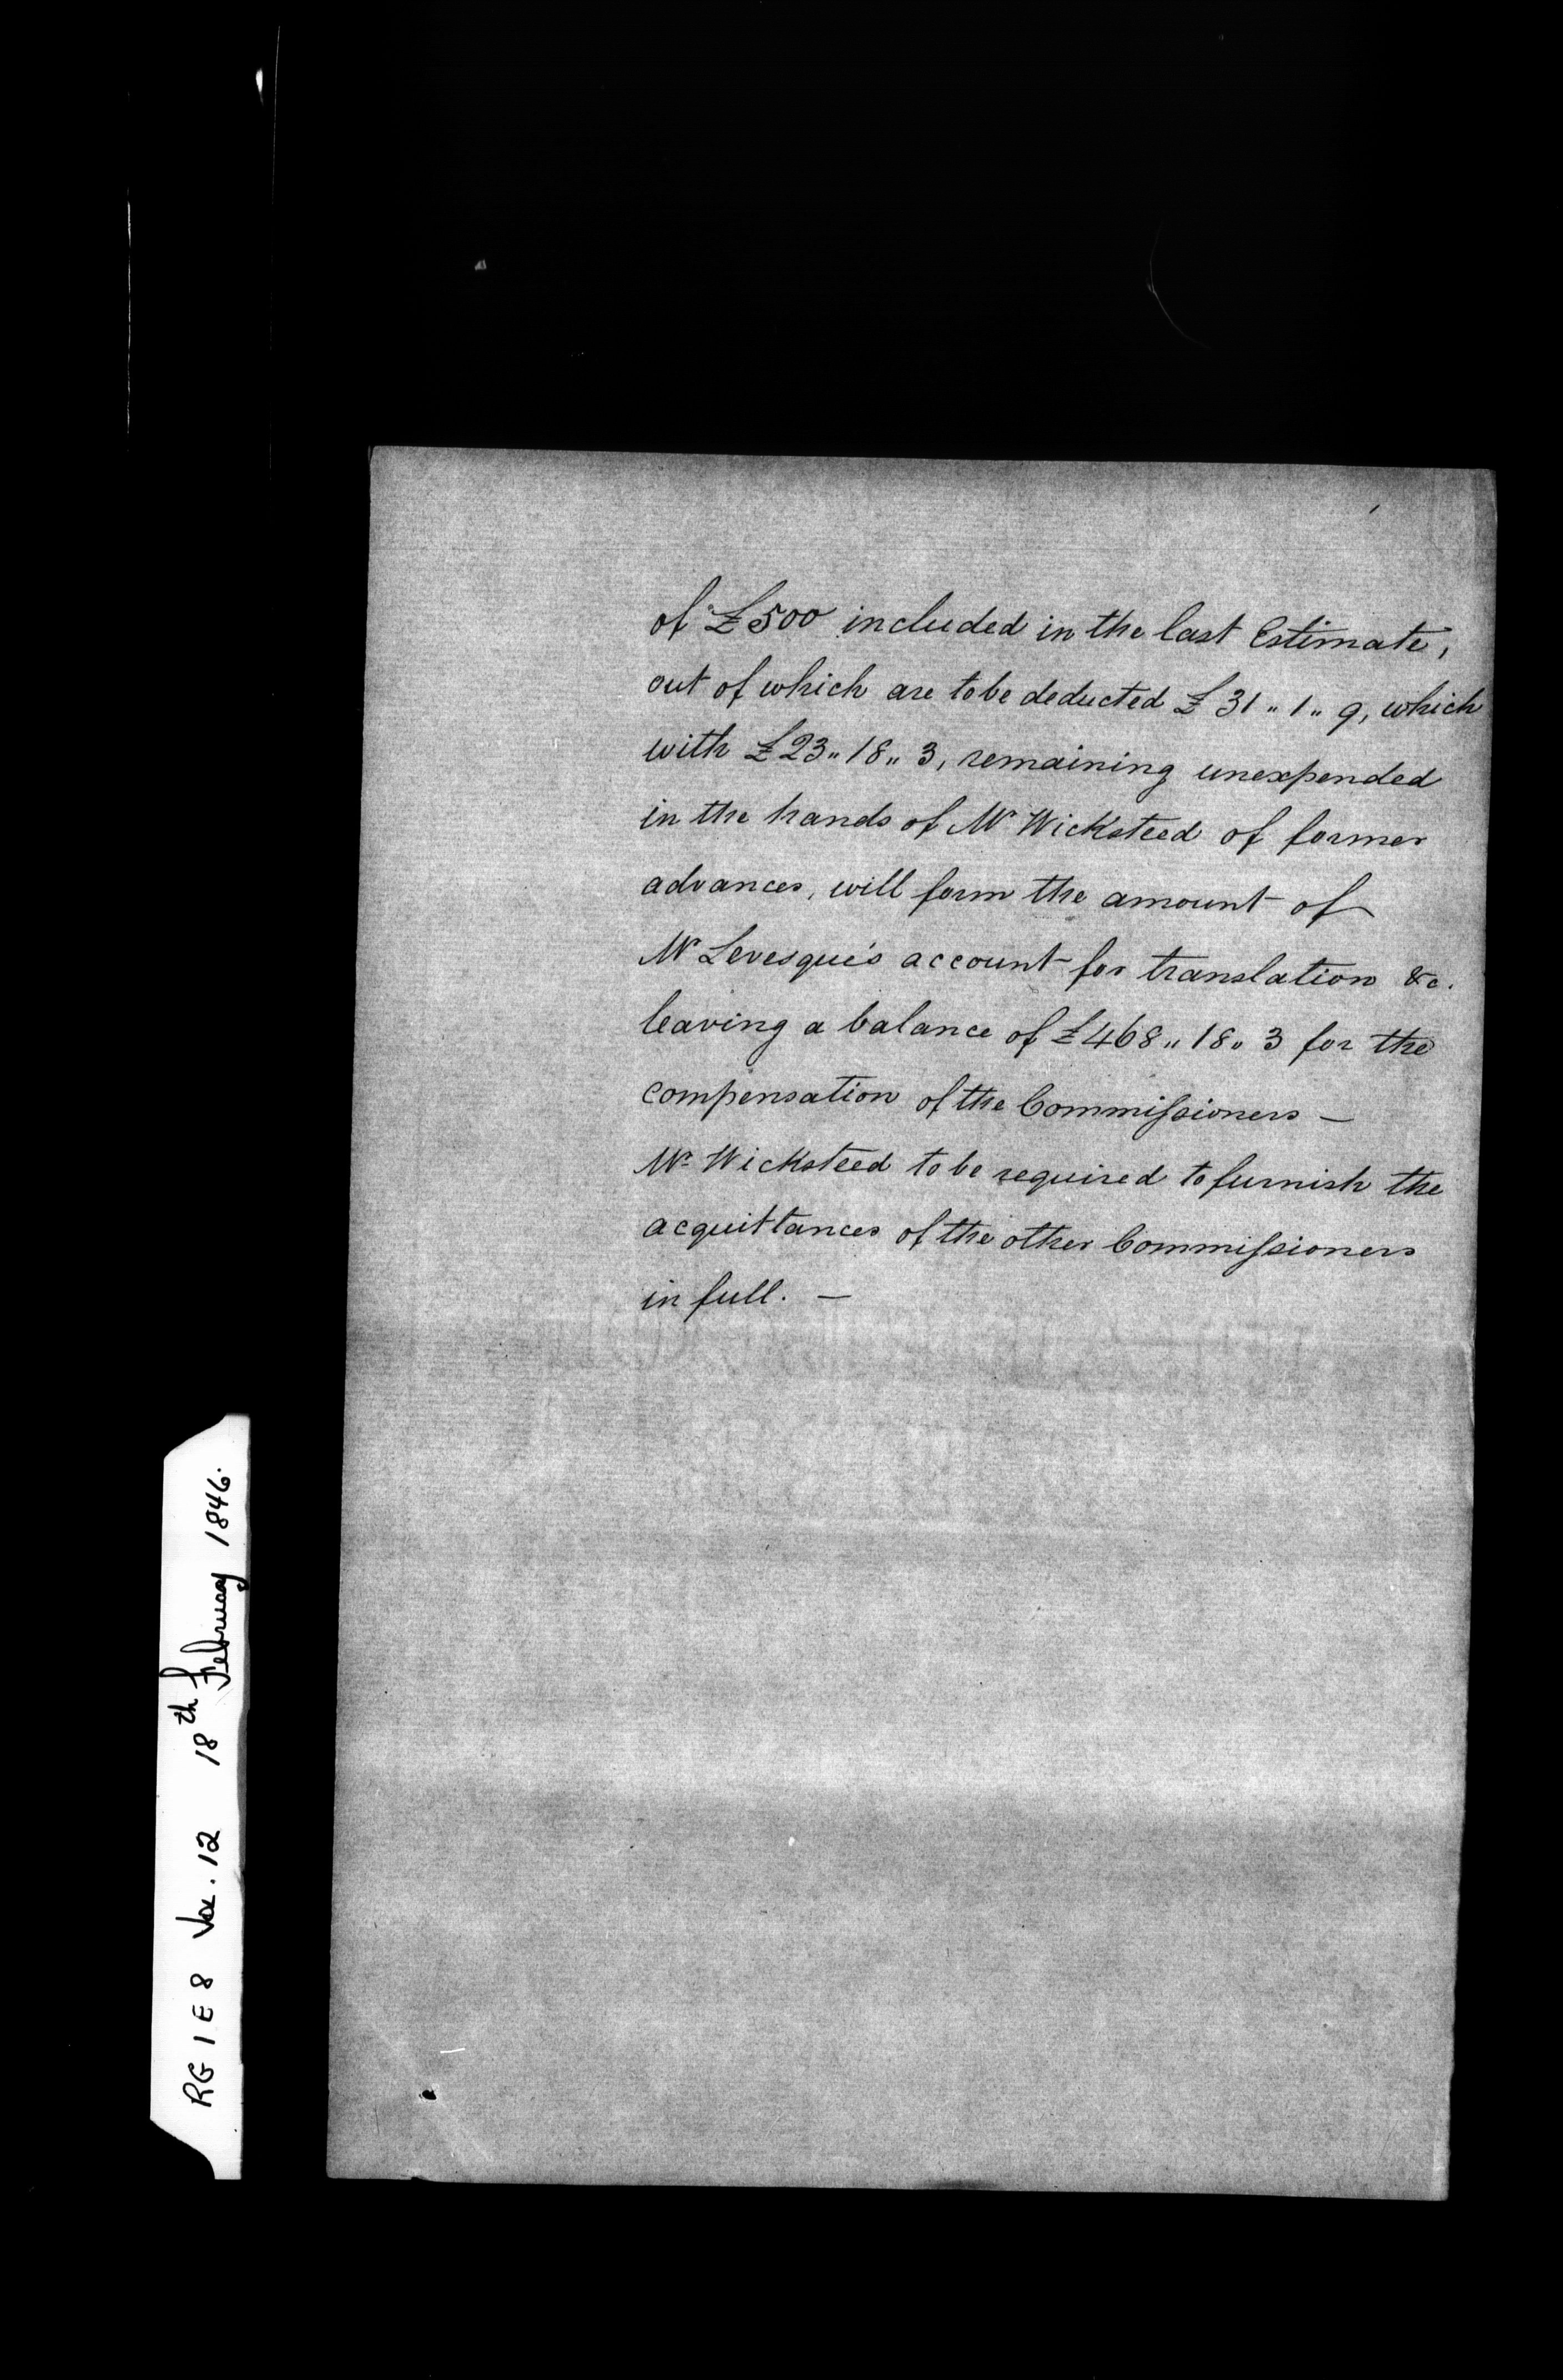 of £500 included in the last Estimate,
out of which are to be deducted £31„1„9, which
with £23„18„3, remaining unexpended
in the hands of Mr Wicksteed of former
advances, will form the amount of
Mr Levesque's account for translation &c.
leaving a balance of £468„18„3 for the
compensation of the Commissioners —
Mr Wicksteed to be required to furnish the
acquittances of the other Commissioners
in full. —
RG 1 E 8 Vol. 12 18th February 1846.